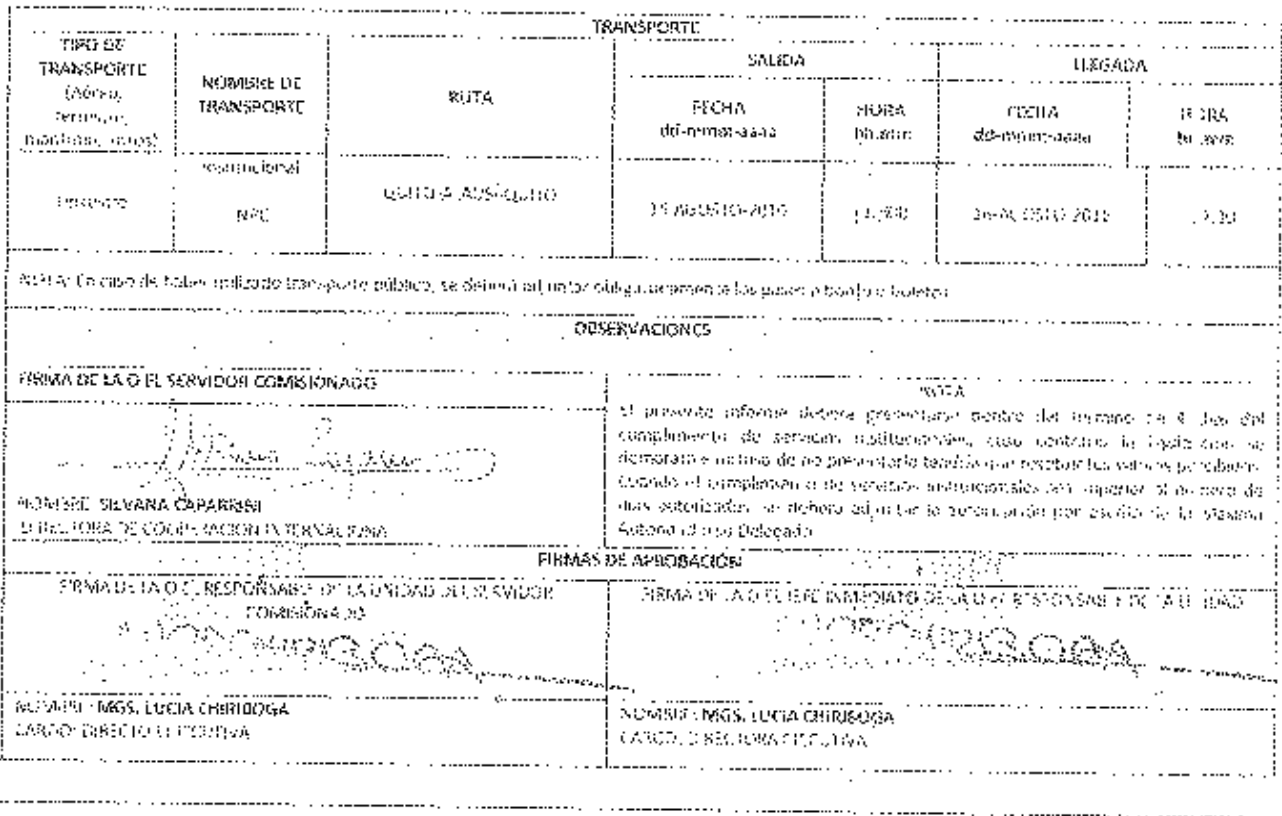 TRANSPORTE
TIPO DE TRANSPORTE (Aéreo, terrestre, marítimo, otros)
NOMBRE DE TRANSPORTE
RUTA
SALIDA
LLEGADA
FECHA dd-mmm-aaaa
HORA hh:mm
FECHA dd-mmm-aaaa
HORA hh:mm
Terrestre
Institucional
QUITO-
AGOSTO-2016
AGOSTO-2016
NOTA: En caso de haber utilizado transporte público, se deberá adjuntar obligatoriamente los pases a bordo o boletos
OBSERVACIONES
FIRMA DE LA O EL SERVIDOR COMISIONADO
NOMBRE: SILVANA CAPARRINI
DIRECTORA DE COOPERACION INTERNACIONAL
NOTA
El presente informe deberá presentarse dentro del término de 4 días del
cumplimiento de servicios institucionales, caso contrario la liquidación se
demorará e incluso de no presentarlo tendría que restituir los valores percibidos.
Cuando el cumplimiento de servicios institucionales sea superior al número de
días autorizados, se deberá adjuntar la autorización por escrito de la Máxima
Autoridad o su Delegado
FIRMAS DE APROBACIÓN
FIRMA DE LA O EL RESPONSABLE DE LA UNIDAD DEL SERVIDOR
COMISIONADO
NOMBRE: MGS. LUCIA CHIRIBOGA
CARGO: DIRECTORA EJECUTIVA
FIRMA DE LA O EL JEFE INMEDIATO DE LA O EL RESPONSABLE DE LA UNIDAD
NOMBRE: MGS. LUCIA CHIRIBOGA
CARGO: DIRECTORA EJECUTIVA